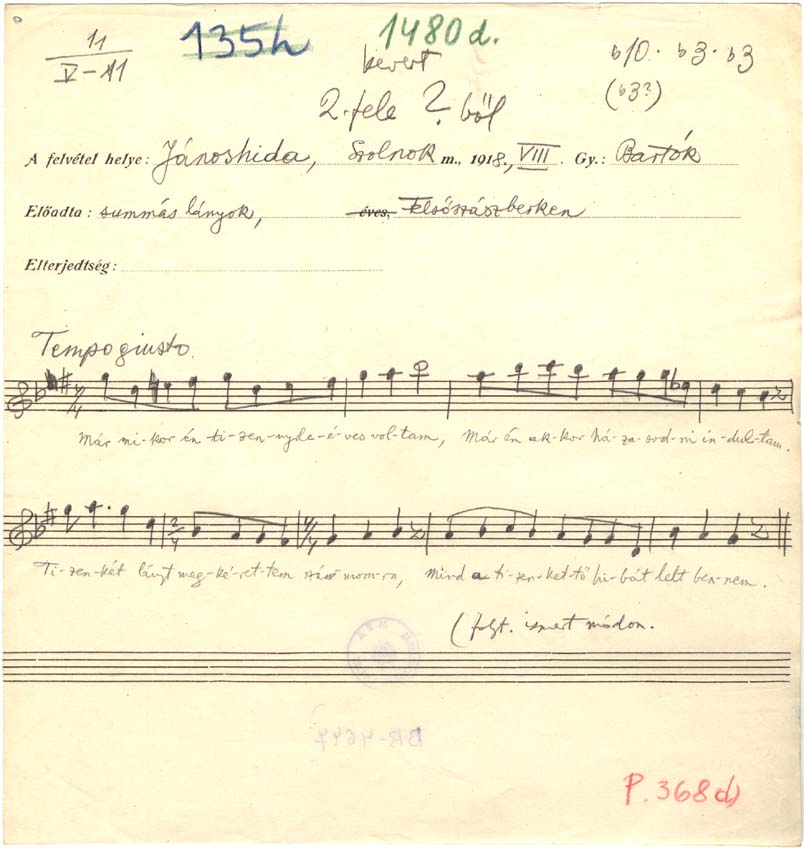 11
V-11
135h
1480d.
kevert
2. fele ? ből
b10. b3. b3
(b3?)
A felvétel helye: Jánoshida, Szolnok m., 1918., VIII. Gy.: Bartók
Előadta: summás lányok, éves, Felsőszászberken
Elterjedtség:
Tempo giusto.
Már mi-kor én ti-zen-nyolc-é-ves vol-tam, Már én ak-kor há-za-sod-ni in-dul-tam.
Ti-zen-két lányt meg-ké-ret-tem szám-mom-ra, Mind a ti-zen-ket-tő hi-bát lelt ben-nem.
(folyt. ismert módon.
BR-4647
P. 368d)